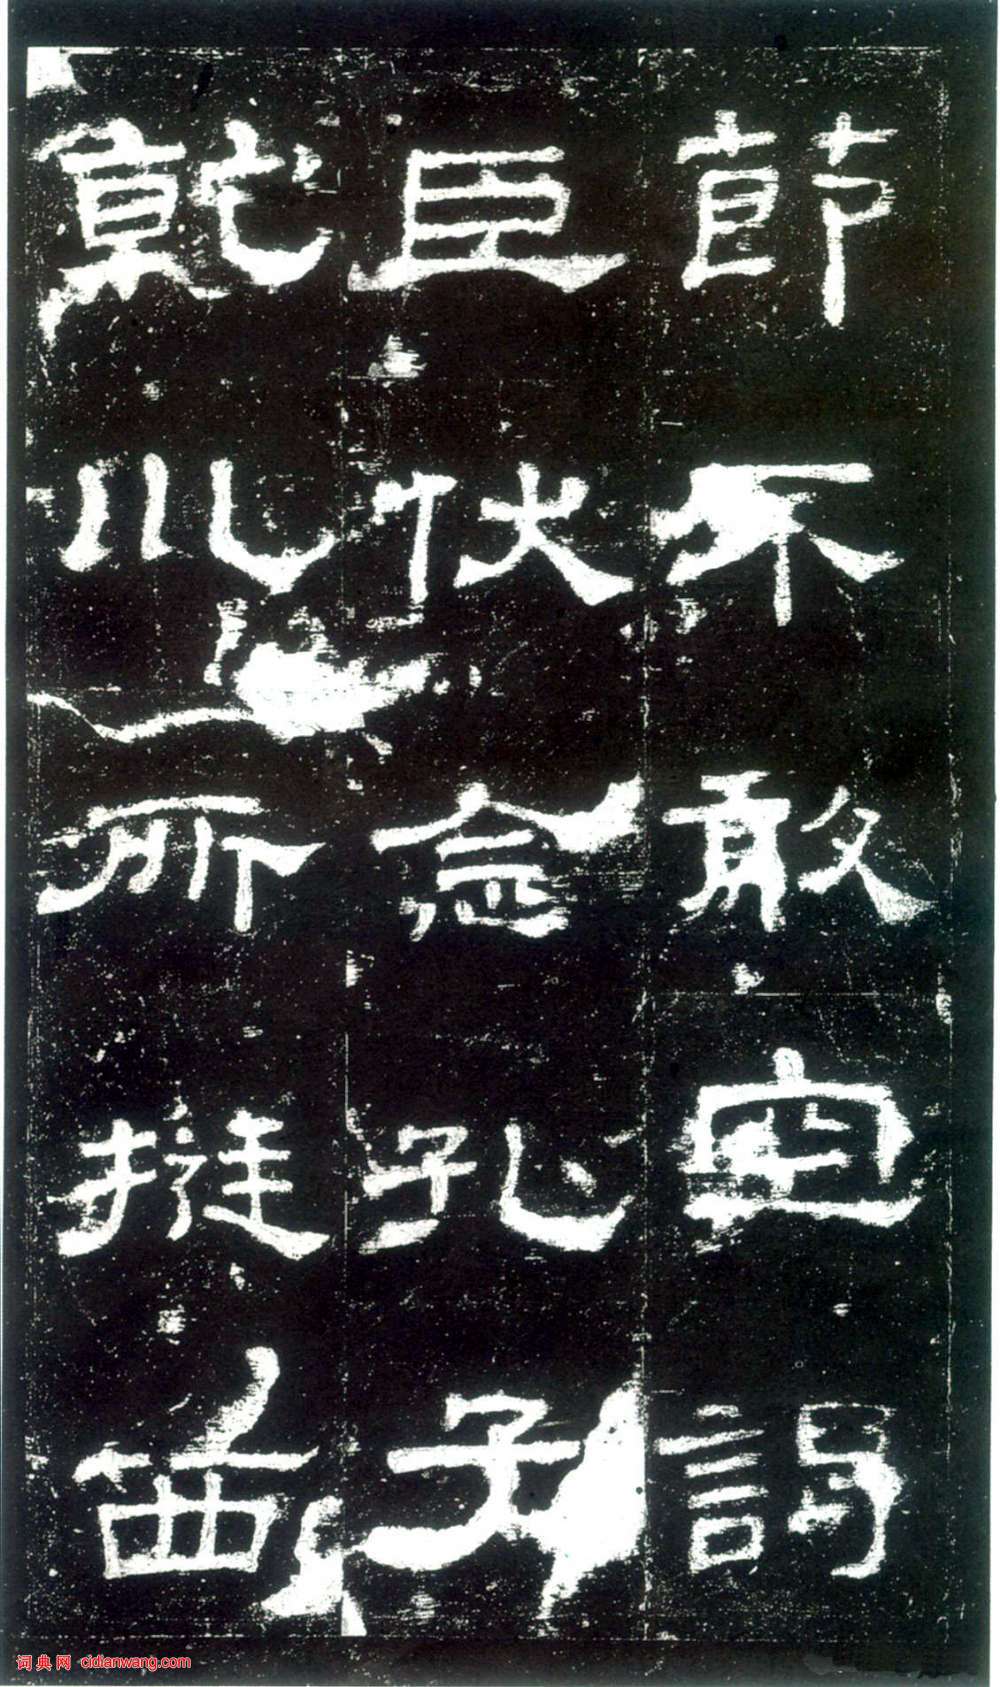 節不敢空謁
臣伏念孔子
乾巛所挺西
词典网 - cidianwang.com